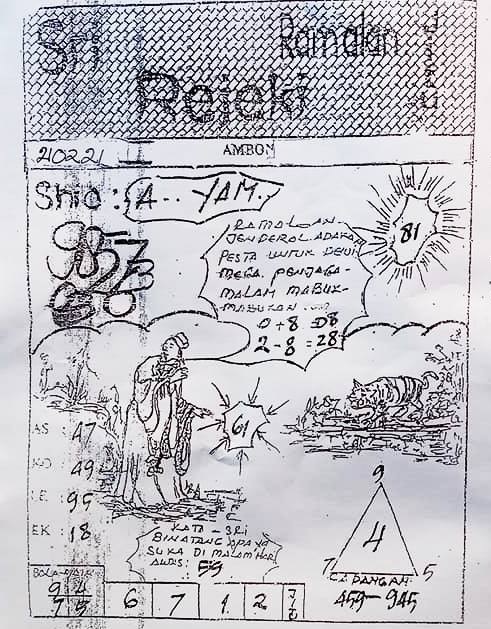 Sri
Ramalan
Rejeki
AMBON
210221
Shio : A.. YAM.
9857
60
RAMALAN
JENDEROL ADAKAN
PESTA UNTUK DEWI
MEGA. PENJAGA-
MALAM MABUK-
MABUKAN ....
0 + 8 = 08
2 - 8 = 28
81
AS : 47
KO : 49
KE : 95
EK : 18
61
KATA - SRI
BINATANG APA YG
SUKA DI MALAM HARI
AWAS : 59
9
4
7 5
CADANGAN
459 - 945
9 4
7 5
6 7 1 2